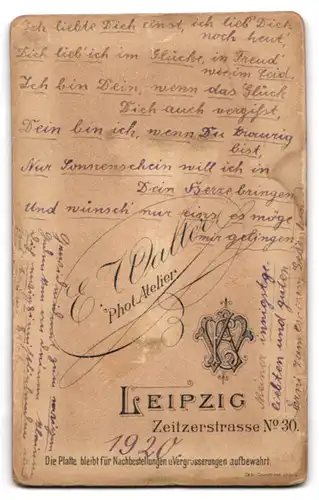 Ich liebte Dich einst, ich lieb' Dich
noch heut',
Dich lieb' ich im Glücke, in Freud'
wie im Leid.
Ich bin Dein, wenn das Glück
Dich auch vergißt,
Dein bin ich, wenn Du traurig
bist,
Nur Sonnenschein will ich in
Dein Herze bringen
Und wünsch' nur eins es möge
mir gelingen.
E. Walter
Phot. Atelier
LEIPZIG
Zeitzerstrasse No 30.
1920
Die Platte bleibt für Nachbestellungen u. Vergrösserungen aufbewahrt.
Meiner innigstge-
liebten und guten
Erni zum